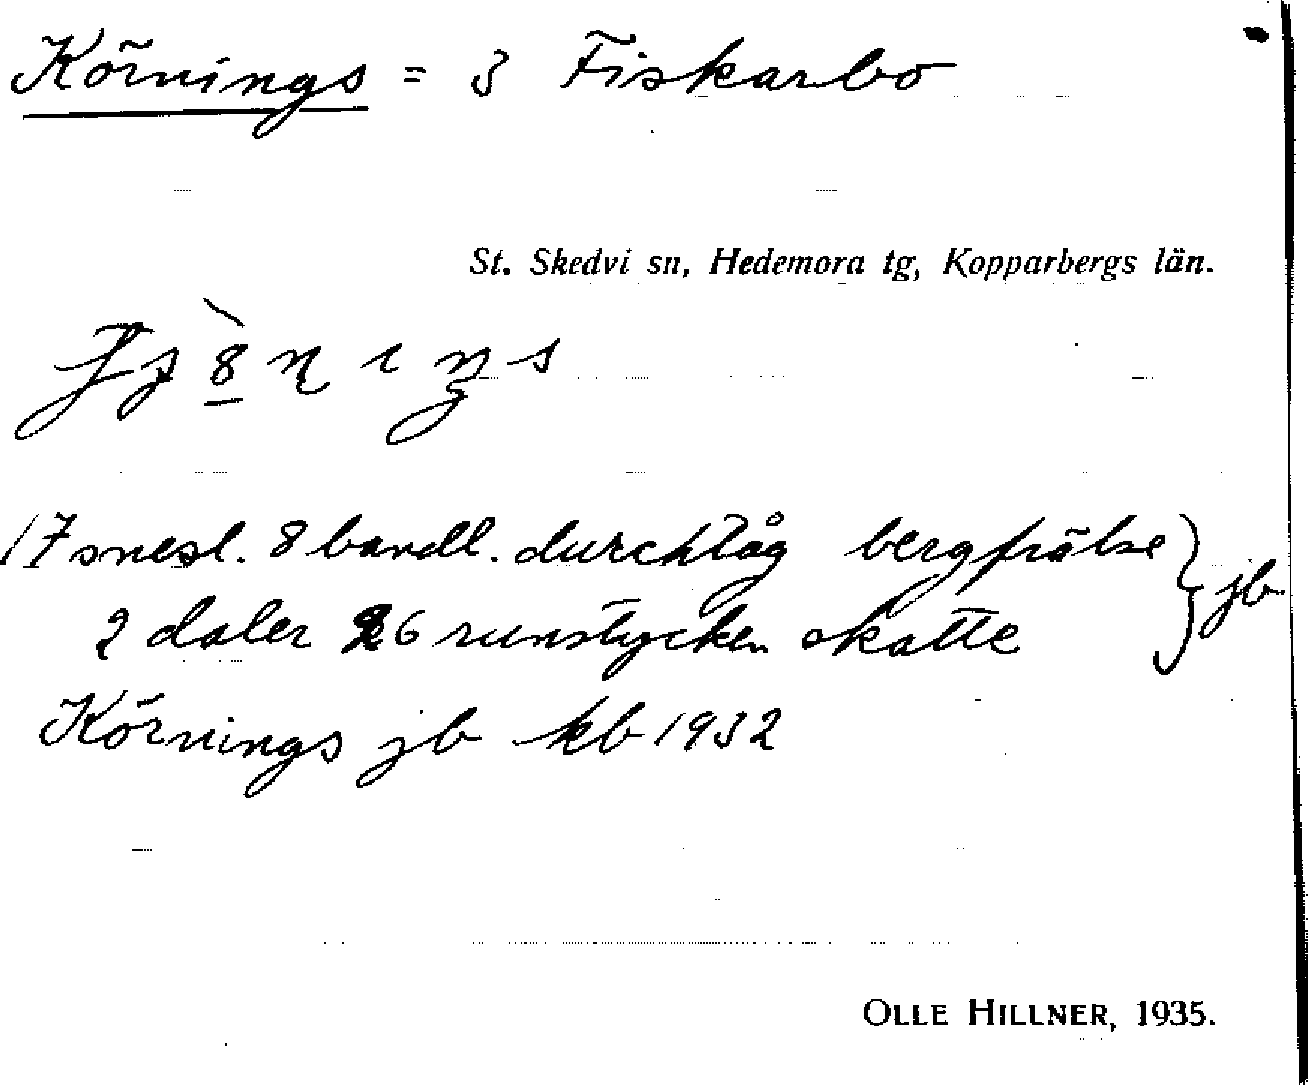 Körnings = 3 Fiskarbo
St. Skedvi sn, Hedemora tg, Kopparbergs län.
17 snesl. 8 bandl. durchtåg bergfrälse } jb
2 daler 26 runstycken skatte
Körnings jb kb 1932
OLLE HILLNER, 1935.